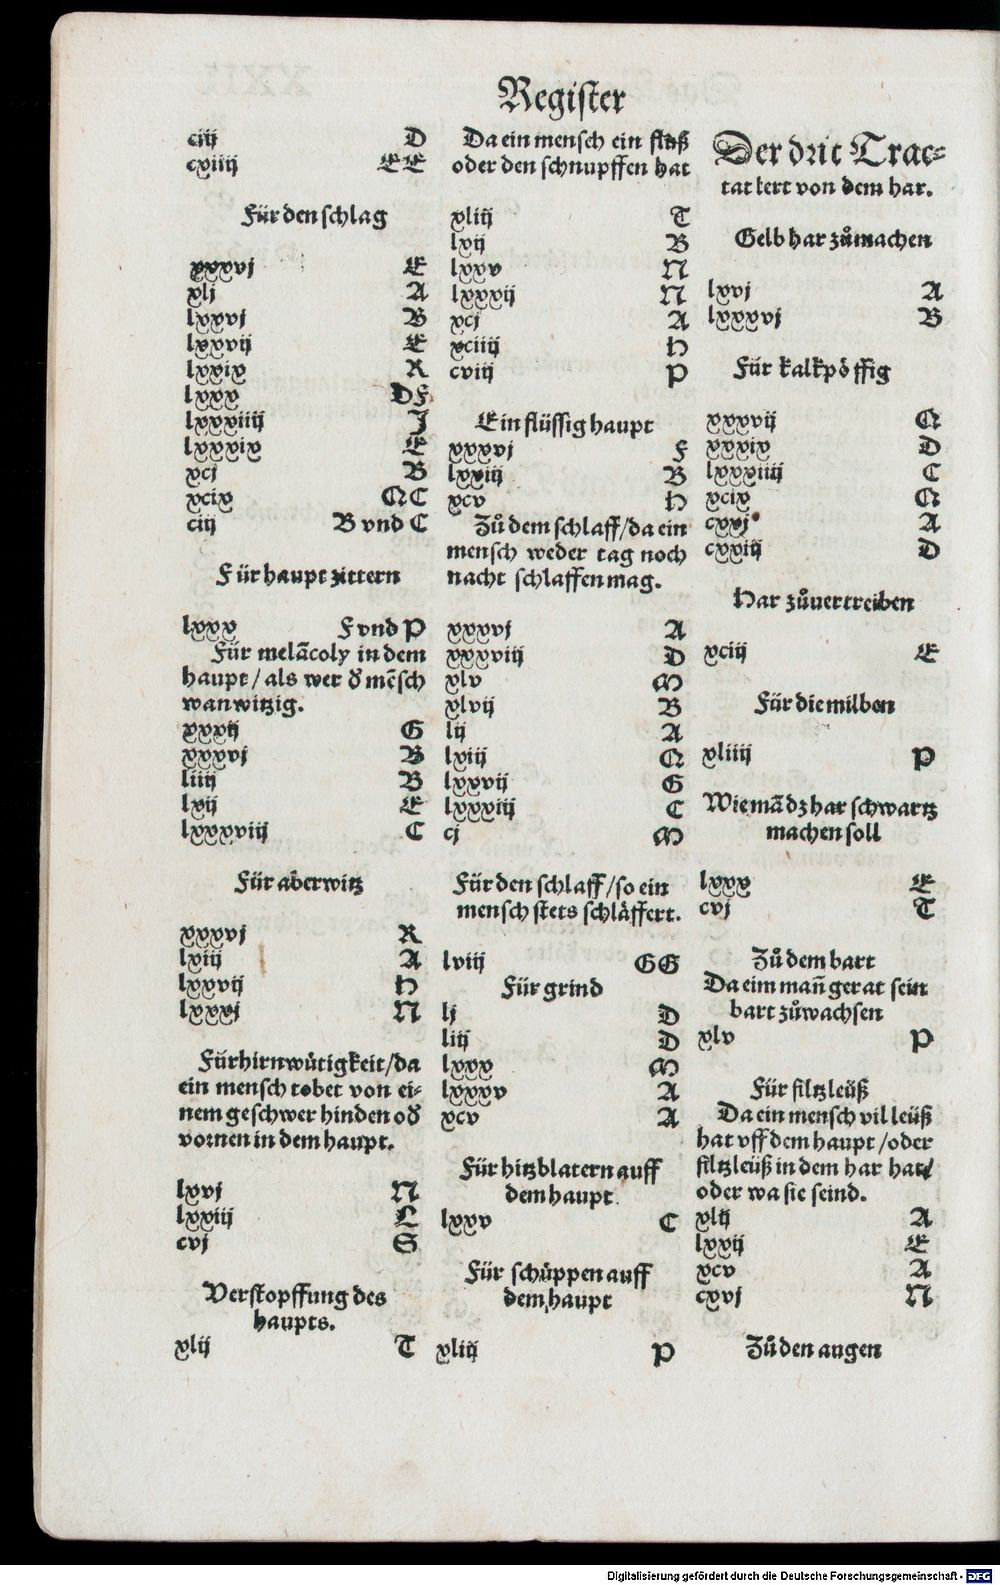 Register
ciij D
cxiiij EE
Für den schlag
xxxvj E
xlj A
lxxvj B
lxxvij E
lxxix R
lxxx DF
lxxxiiij J
lxxxix E
xcj B
xcix QC
ciij B vnd C
Für haupt zittern
lxxx F vnd P
Für melācoly in dem
haupt / als wer d̕ mēsch
wanwitzig.
xxxij G
xxxvj B
liiij B
lxij E
lxxxviij C
Für aberwitz
xxxvj R
lxiij A
lxxvij H
lxxxj N
Für hirnwůtigkeit/da
ein mensch tobet von ei-
nem geschwer hinden od̕
vornen in dem haupt.
lxvj N
lxxiij L
cvj S
Verstopffung des
haupts.
xlij T
Da ein mensch ein fluß
oder den schnupffen hat
xliij T
lxij B
lxxv N
lxxxij N
xcj A
xciiij H
cviij P
Ein flüssig haupt
xxxvj F
lxxiij B
xcv H
Zů dem schlaff/da ein
mensch weder tag noch
nacht schlaffen mag.
xxxvj A
xxxviij D
xlv M
xlvij B
lij A
lxiij Q
lxxvij G
lxxxiij C
cj M
Für den schlaff/so ein
mensch stets schläffert.
lviij GG
Für grind
lj D
liij D
lxxx M
lxxxv A
xcv A
Für hitzblatern auff
dem haupt
lxxv C
Für schůppen auff
dem haupt
xliij P
Der drit Trac-
tat lert von dem har.
Gelb har zůmachen
lxvj A
lxxxvj B
Für kalkpöffig
xxxvij Q
xxxix D
lxxxiiij C
xcix Q
cxxj A
cxxiij D
Har zůuertreiben
xciij E
Für die milben
xliiij P
Wie mā dz har schwartz
machen soll
lxxx E
cvj T
Zů dem bart
Da eim mañ gerat sein
bart zůwachsen
xlv P
Für filtzleüß
Da ein mensch vil leüß
hat vff dem haupt/oder
filtzleüß in dem har hat/
oder wa sie seind.
xlij A
lxxij E
xcv A
cxvj N
Zů den augen
Digitalisierung gefördert durch die Deutsche Forschungsgemeinschaft - DFG